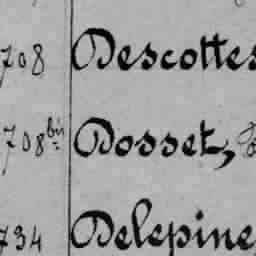 708 Descottes
708 bis Dosset,
734 Delepine,